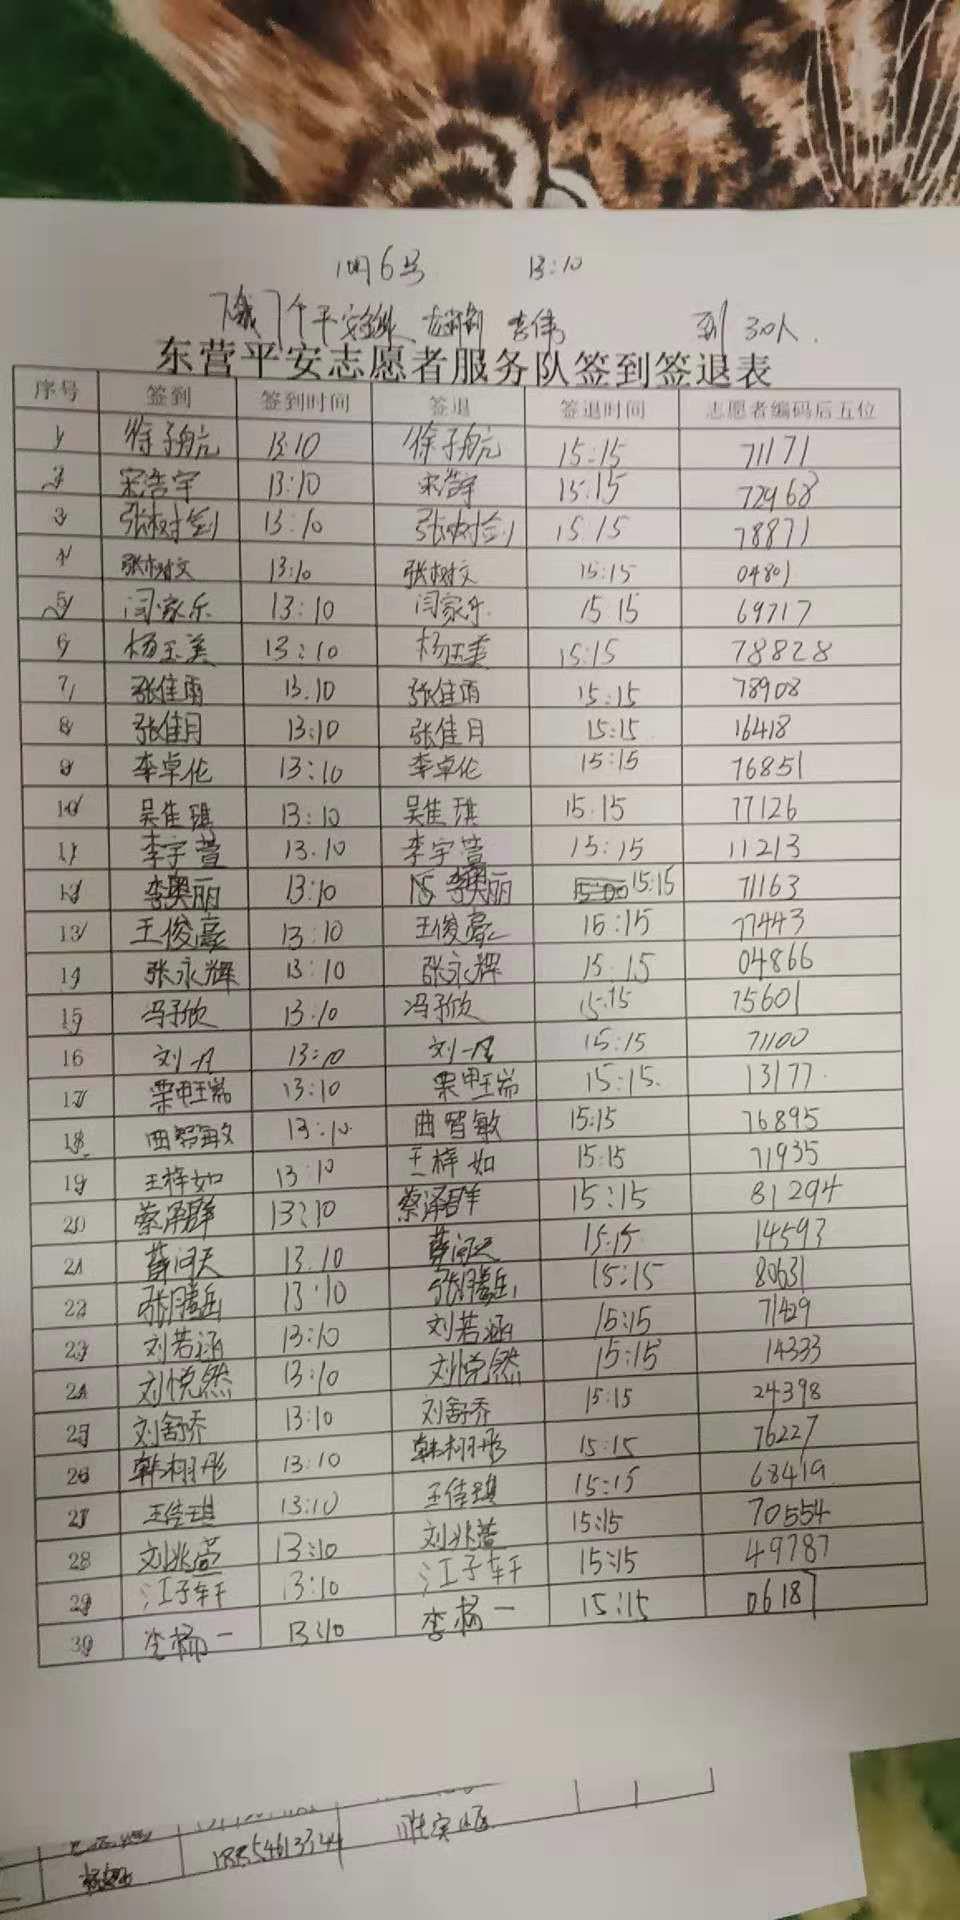 10月6号 13:10
到30人.
东营平安志愿者服务队签到签退表
序号 签到 签到时间 签退 签退时间 志愿者编码后五位
1 徐子航 13:10 徐子航 15:15 71171
2 宋浩宇 13:10 宋浩宇 15:15 72968
3 张树剑 13:10 张树剑 15:15 78871
4 张树文 13:10 张树文 15:15 04801
5 闫家乐 13:10 闫家乐 15:15 69717
6 杨玉美 13:10 杨玉美 15:15 78828
7 张佳雨 13:10 张佳雨 15:15 78908
8 张佳月 13:10 张佳月 15:15 16418
9 李卓伦 13:10 李卓伦 15:15 76851
10 吴佳琪 13:10 吴佳琪 15:15 77126
11 李宇萱 13:10 李宇萱 15:15 11213
12 李奥丽 13:10 李奥丽 15:15 71163
13 王俊豪 13:10 王俊豪 15:15 77443
14 张永辉 13:10 张永辉 15:15 04866
15 冯子欣 13:10 冯子欣 15:15 75601
16 刘一 13:10 刘一 15:15 71100
17 13:10 15:15 13177
18 曲智敏 13:10 曲智敏 15:15 76895
19 王梓如 13:10 王梓如 15:15 71935
20 蔡泽群 13:10 蔡泽群 15:15 81294
21 薛问天 13:10 薛问天 15:15 14593
22 张腾岳 13:10 张腾岳 15:15 80631
23 刘若涵 13:10 刘若涵 15:15 71429
24 刘悦然 13:10 刘悦然 15:15 14333
25 刘舒乔 13:10 刘舒乔 15:15 24398
26 韩栩彤 13:10 韩栩彤 15:15 76227
27 王佳琪 13:10 王佳琪 15:15 68419
28 刘兆萱 13:10 刘兆萱 15:15 70554
29 江子轩 13:10 江子轩 15:15 49787
30 李杨一 13:10 李杨一 15:15 06187